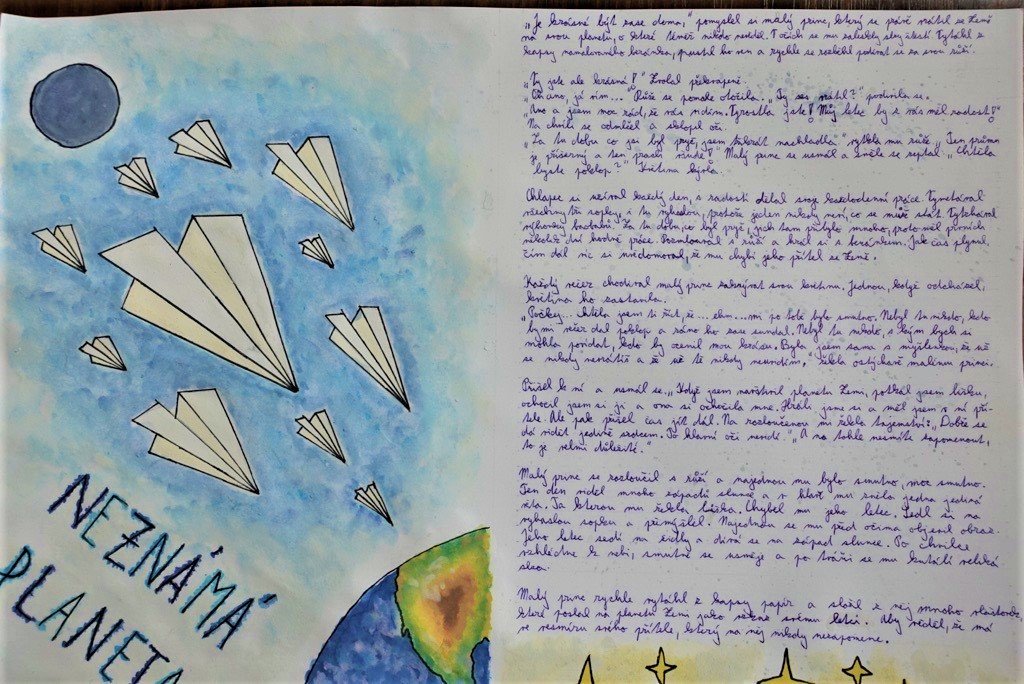 NEZNÁMÁ
PLANETA
„Je krásné být zase doma," pomyslel si malý princ, který se právě vrátil ze Země
na svou planetu, o které téměř nikdo nevěděl. V očích se mu zaleskly slzy štěstí. Vytáhl z
kapsy namalovaného beránka, pustil ho ven a rychle se rozběhl podívat se za svou růží.
„Vy jste ale krásná!" Zvolal překvapeně.
já vím..." Růže se pomalu otočila. „Ty ses vrátil?" podivila se.
„Ano a jsem moc rád, že vás vidím. Vyrostla jste! Můj letec by z vás měl radost!"
Na chvíli se odmlčel a sklopil oči.
„Za tu dobu co jsi byl pryč, jsem nachladla," vyčetla mu růže. „Ten průvan
je příšerný a ten prach všude!" Malý princ se usmál a směle se zeptal „Chtěla
byste poklop?" Květina kývla.
Chlapec si užíval každý den, s radostí dělal svoje každodenní práce. Vymetával
všechny tři sopky, i tu vyhaslou, protože jeden nikdy neví, co se může stát. Vytrhával
výhonky baobabů. Za tu dobu, co byl pryč, jich tam přibylo mnoho, proto měl prvních
několik dní hodně práce. Rozmlouval s růží a hrál si s beránkem. Jak čas plynul,
čím dál víc si uvědomoval, že mu chybí jeho přítel ze Země.
Každý večer chodíval malý princ zakrývat svou květinu. Jednou, když odcházel,
květina ho zastavila.
„Počkej... Chtěla jsem ti říct, že... ehm... mi po tobě bylo smutno. Nebyl tu nikdo, kdo
by mi večer dal poklop a ráno ho zase sundal. Nebyl tu nikdo, s kým bych si
mohla povídat, kdo by ocenil mou krásu. Byla jsem sama s myšlenkou, že už
se nikdy nevrátíš a že už tě nikdy neuvidím," řekla ostýchavě malému princi.
Přišel k ní a usmál se. „Když jsem navštívil planetu Zemi, potkal jsem lišku,
ochočil jsem si ji a ona si ochočila mne. Hráli jsme si a měl jsem v ní pří-
tele. Ale pak přišel čas jít dál. Na rozloučenou mi řekla tajemství: „Dobře se
dá vidět jedině srdcem. Co hlavní oči nevidí." „A na tohle nesmíte zapomenout,
to je velmi důležité."
Malý princ se rozloučil s růží a najednou mu bylo smutno, moc smutno.
Ten den viděl mnoho západů slunce a v hlavě mu zněla jedna jediná
věta. Ta kterou mu řekla liška. Chyběl mu jeho letec. Sedl si na
vyhaslou sopku a přemýšlel. Najednou se mu před očima objevil obraz.
Jeho letec sedí na židli a dívá se na západ slunce. Po chvilce
vzhlédne k nebi, smutně se usměje a po tváři se mu kutálí veliká
slza.
Malý princ rychle vytáhl z kapsy papír a složil z něj mnoho vlaštovek,
které poslal na planetu Zemi jako vzkaz svému letci. Aby věděl, že má
ve vesmíru svého přítele, který na něj nikdy nezapomene.